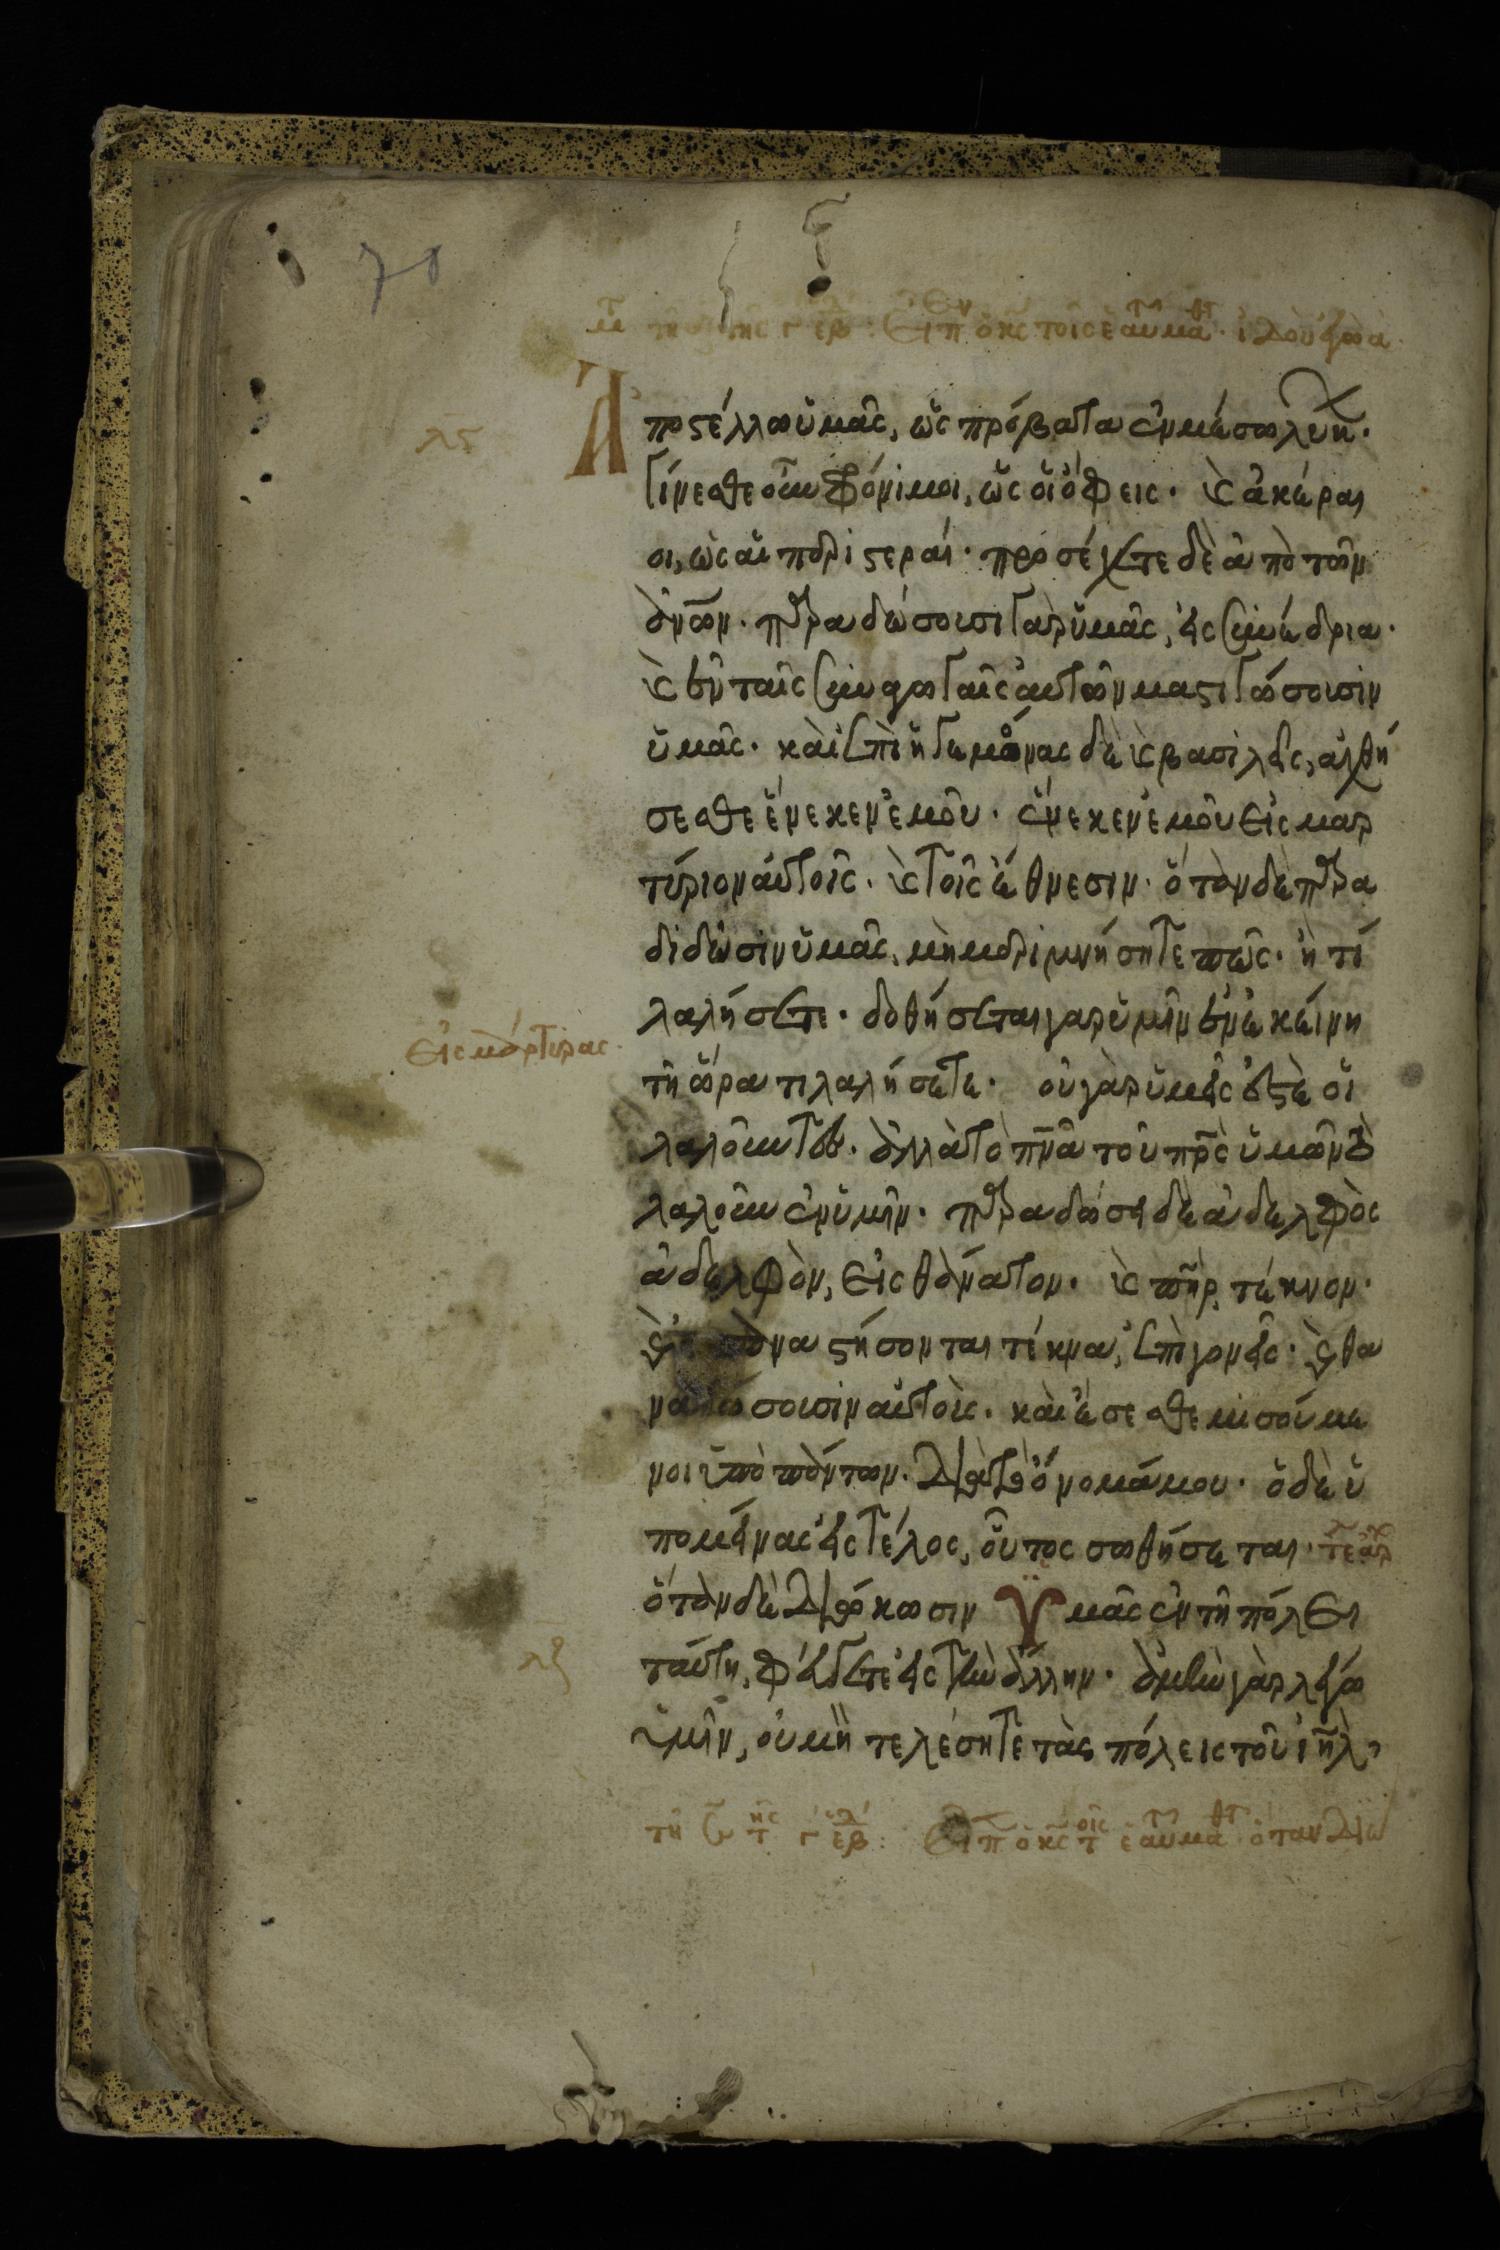 70
τῇ ῆς γ ἑβ: Εἶπ ὁ κς τοῖς ἑαυ μα. ἰδοὺ ἐγὼ ἀ.
λς
Αποστέλλω ὑμᾶς, ὡς πρόβατα ἐν μέσω λύκ.
Γίνεσθε οὖν φρόνιμοι, ὡς οἱ ὄφεις. καὶ ἀκέραι
οι, ὡς αἱ περιστεραί. προσέχετε δὲ ἀπὸ τῶν
ἀνων. παραδώσουσι γὰρ ὑμᾶς, εἰς συνέδρια.
καὶ ἐν ταῖς συναγωγαῖς αὐτῶν μαστιγώσουσιν
ὑμᾶς. καὶ ἐπὶ ἡγεμόνας δὲ καὶ βασιλεῖς, ἀχθή
σεσθε ἕνεκεν ἐμοῦ. ἕνεκεν ἐμοῦ εἰς μαρ
τύριον αὐτοῖς. καὶ τοῖς ἔθνεσιν. ὅταν δὲ παρα
διδῶσιν ὑμᾶς, μὴ μεριμνήσητε πῶς. ἢ τί
λαλήσετε. δοθήσεται γὰρ ὑμῖν ἐν ἐκείνη
εἰς μάρτυρας.
τῆ ὥρα τι λαλήσετε. οὐ γὰρ ὑμεῖς ἐστὲ οἱ
λαλοῦντες. ἀλλὰ τὸ πνα τοῦ πρς ὑμῶν τὸ
λαλοῦν ἐν ὑμῖν. παραδώσει δὲ ἀδελφὸς
ἀδελφὸν, εἰς θάνατον. καὶ πηρ, τέκνον.
καὶ ἐπαναστήσονται τέκνα, ἐπὶ γονεῖς. καὶ θα
νατώσουσιν αὐτοὺς. καὶ ἔσεσθε μισούμε
νοι ὑπὸ πάντων. διὰ τὸ ὄνομά μου. ὁ δὲ ὑ
πομείνας εἰς τέλος, οὗτος σωθήσεται. τε
ὅταν δὲ διώκωσιν Ὑμᾶς ἐν τῆ πόλει
λζ
ταύτη, φεύγετε εἰς τὴν ἄλλην. ἀμὴν γὰρ λέγω
ὑμῖν, οὐ μὴ τελέσητε τὰς πόλεις τοῦ ιηλ,
τῇ τῆς γ ἑβ: Εἶπ ὁ κς τοῖς ἑαυ μα ὅταν διω